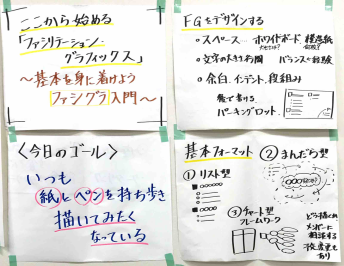 ここから始める
「ファシリテーション・
グラフィックス」
〜基本を身に着けよう
ファシグラ入門〜
FGをデザインする
○スペース…ホワイトボード、模造紙
○文字の大きさ、行間 バランスと経験
○余白、インデント、段組み
後で書ける
パーキングロット.
〈今日のゴール〉
いつも
紙とペンを持ち歩き
描いてみたく
なっている
基本フォーマット
①リスト型
②まんだら型
③チャート型
フレームワーク
どう描くか
メンバーに
相談する